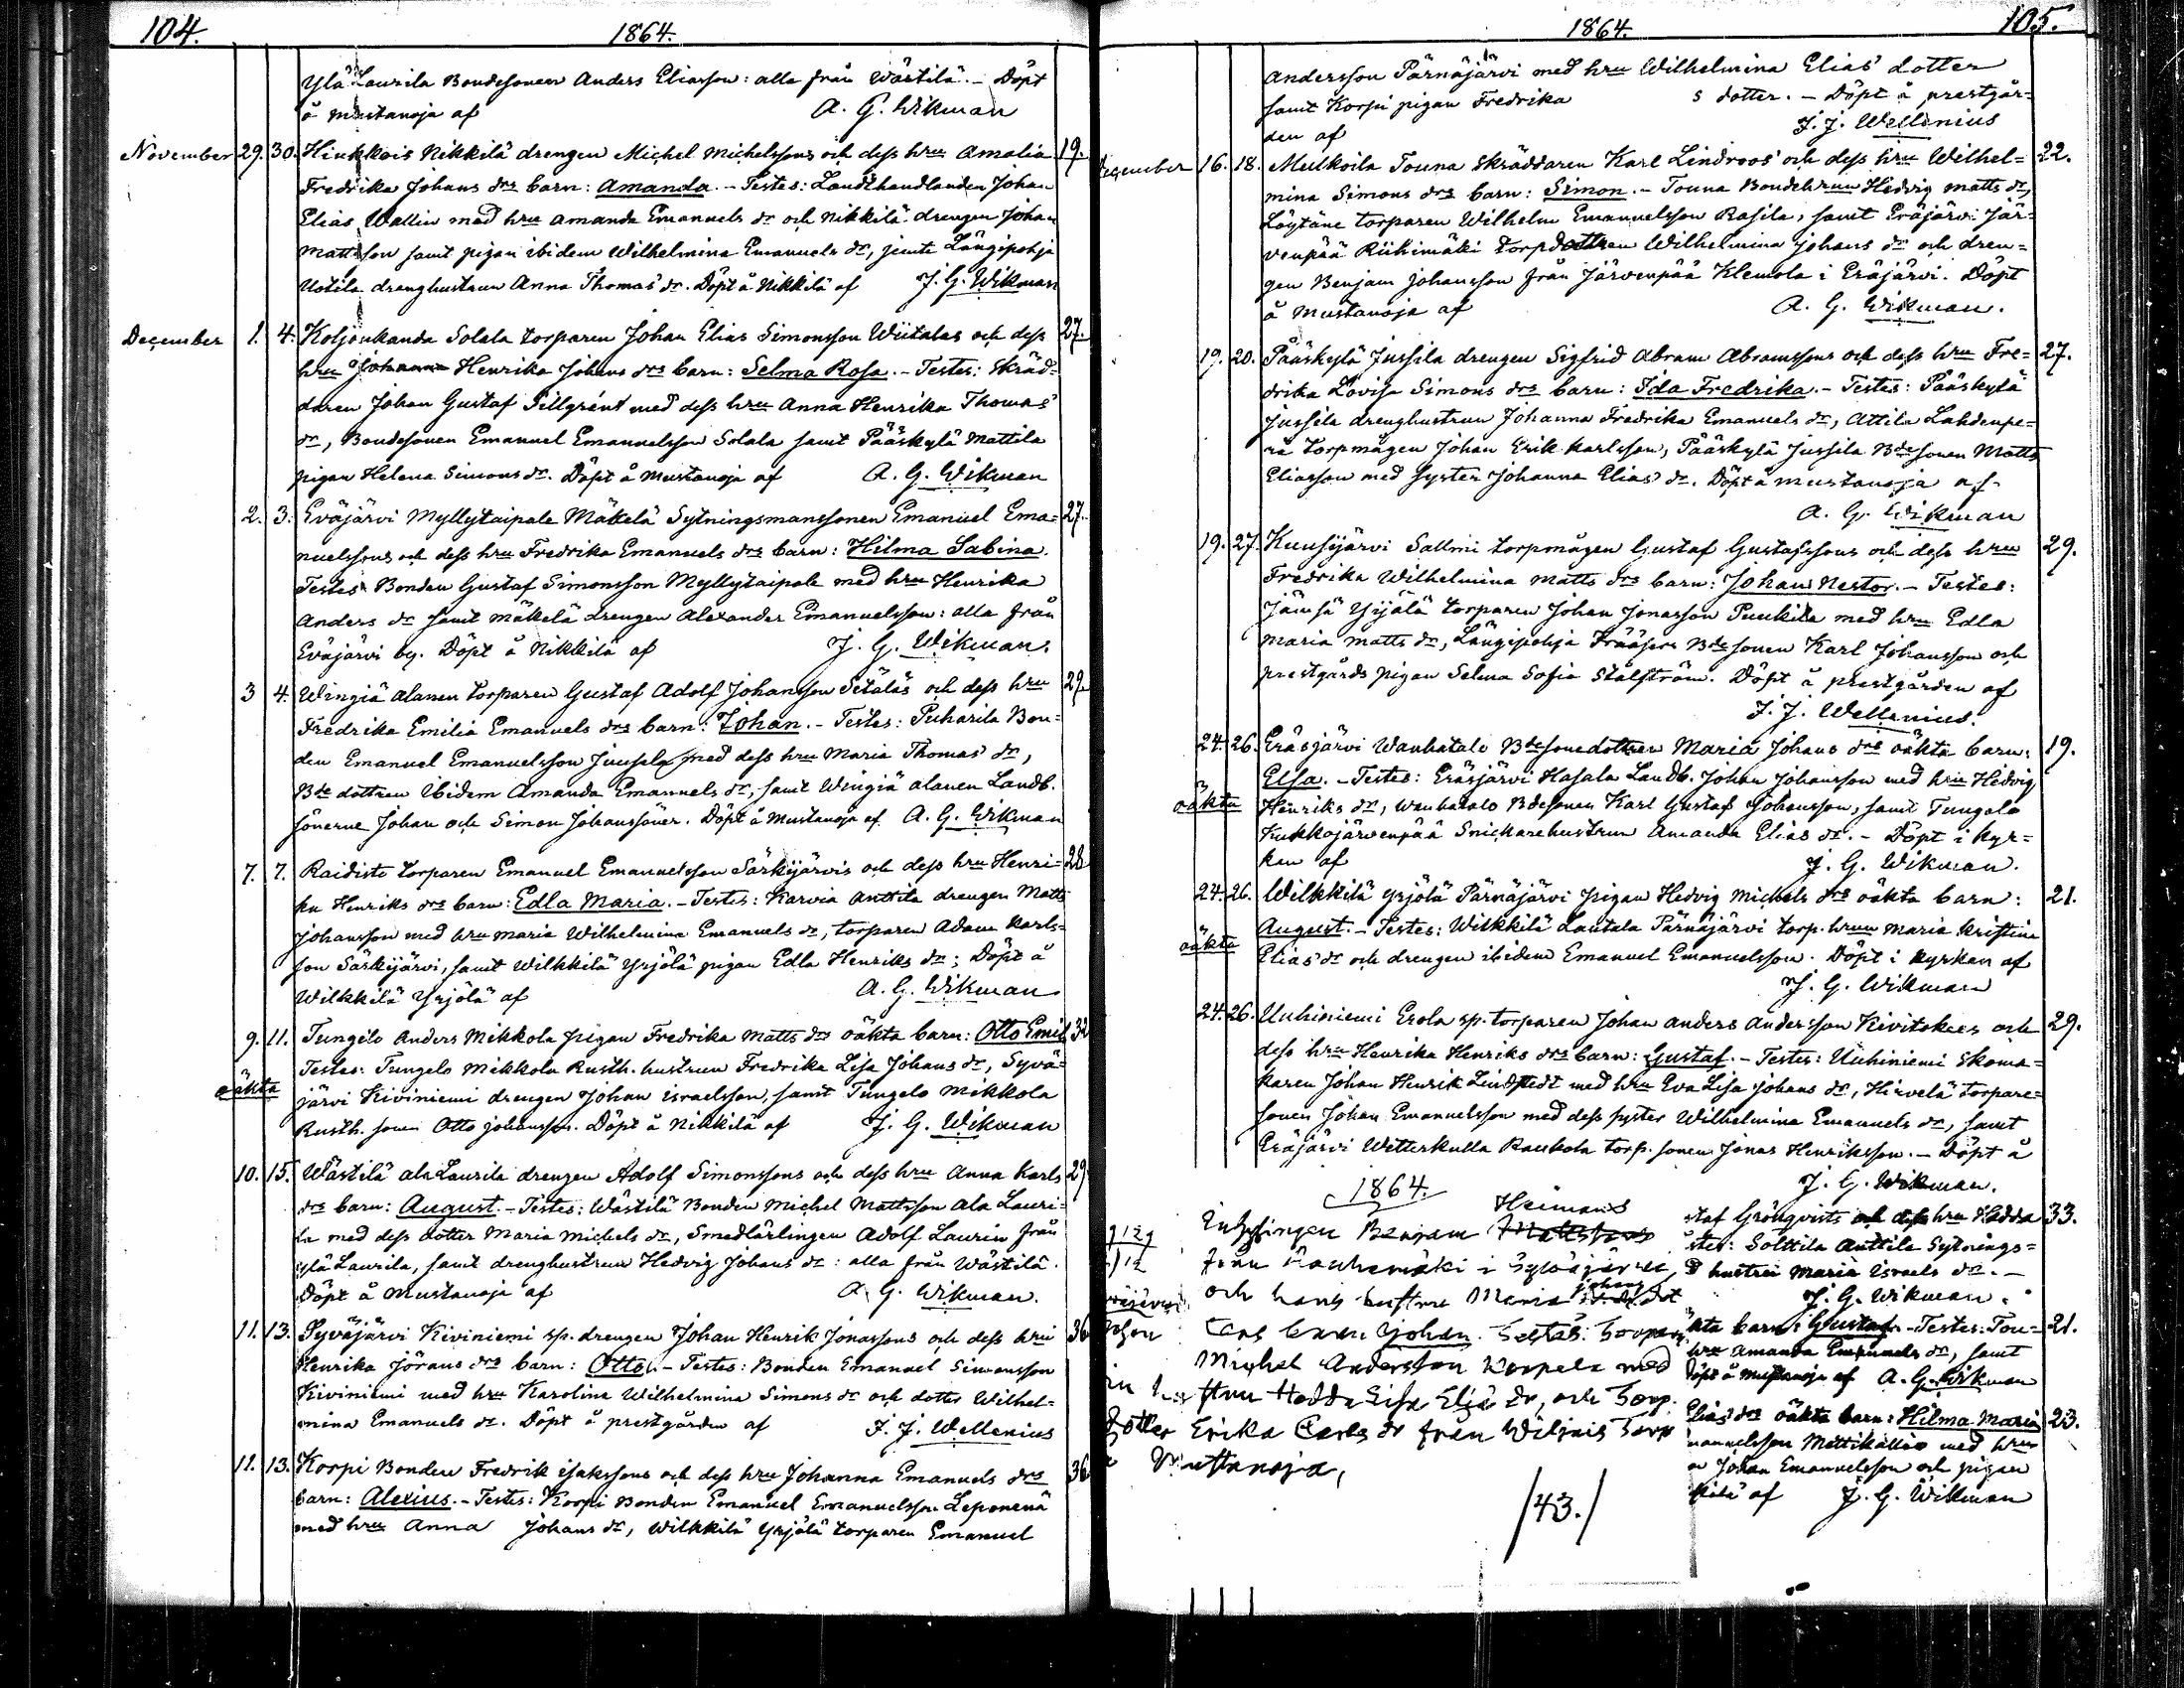 104.
1864.
Ylä Laurila Bondesonen Anders Eliasson: alla från Wästilä. – Döpt
å Mustanoja af A. G. Wikman
November 29. 30. Hinkkois Nikkilä drengen Michel Michelssons och dess hru Amalia 19.
Fredrika Johans drs barn: Amanda. – Testes: Landthandlanden Johan
Elias Wallin med hru Amanda Emanuels dr och Nikkilä drengen Johan
Mattsson samt pigan ibidem Wilhelmina Emanuels dr, jemte Längipohja
Uotila drenghustrun Anna Thomas dr. Döpt å Nikkilä af J. G. Wikman
December 1. 4. Koljonkanda Solala torparen Johan Elias Simonsson Wiitalas och dess 27.
hru Johanna Henrika Johans drs barn: Selma Rosa. – Testes: Skräd=
daren Johan Gustaf Sillgrént med dess hru Anna Henrika Thomas
dr, Bondesonen Emanuel Emanuelsson Solala samt Pääskylä Mattila
pigan Helena Simons dr. Döpt å Mustanoja af A. G. Wikman
2. 3. Eväjärvi Myllytaipale Mäkelä Sytningsmanssonen Emanuel Ema= 27.
nuelssons och dess hru Fredrika Emanuels drs barn: Hilma Sabina.
Testes: Bonden Gustaf Simonsson Myllytaipale med hru Henrika
Anders dr samt Mäkelä drengen Alexander Emanuelsson: alla från
Eväjärvi by. Döpt å Nikkilä af J. G. Wikman.
3 4. Wingiä Alanen torparen Gustaf Adolf Johansson Setäläs och dess hru 29.
Fredrika Emilia Emanuels drs barn: Johan. – Testes: Puharila Bon=
den Emanuel Emanuelsson Juusela med dess hru Maria Thomas dr,
Bde dottren ibidem Amanda Emanuels dr, samt Wingiä Alanen Landb.
sönerne Johan och Simon Johanssöner. Döpt å Mustanoja af A. G. Wikman
7. 7. Raidisto torparen Emanuel Emanuelsson Särkijärvis och dess hru Henri= 28
ka Henriks drs barn: Edla Maria. – Testes: Karvia Anttila drengen Matts
Johansson med hru Maria Wilhelmina Emanuels dr, torparen Adam Karls=
son Särkijärvi, samt Wilkkilä Yrjölä pigan Edla Henriks dr; Döpt å
Wilkkilä Yrjölä af A. G. Wikman
9. 11. Tungelo Anders Mikkola pigan Fredrika Matts drs oäkta barn: Otto Emil 32
Testes: Tungelo Mikkola Rusth. hustrun Fredrika Lisa Johans dr, Syvä=
oäkta järvi Kiviniemi drengen Johan Israelsson, samt Tungelo Mikkola
Rusth. sonen Otto Johansson. Döpt å Nikkilä af J. G. Wikman
10. 15. Wästilä Ala Laurila drengen Adolf Simonssons och dess hru Anna Karls 29
drs barn: August. – Testes: Wästilä Bonden Michel Mattsson Ala Lauri=
la med dess dotter Maria Michels dr, Smedlärlingen Adolf Laurin från
Ylä Laurila, samt drenghustrun Hedvig Johans dr: alla från Wästilä.
Döpt å Mustanoja af A. G. Wikman.
11. 13. Syväjärvi Kiviniemi sp. drengen Johan Henrik Jonassons och dess hru 36
Henrika Jörans drs barn: Otto. – Testes: Bonden Emanuel Simonsson
Kiviniemi med hru Karolina Wilhelmina Simons dr och dotter Wilhel=
mina Emanuels dr. Döpt å prestgården af J. J. Wellenius
11. 13. Korpi Bonden Fredrik Isakssons och dess hru Johanna Emanuels drs 36
barn: Alexius. – Testes: Korpi Bonden Emanuel Emanuelsson Leponenä
med hru Anna Johans dr, Wilkkilä Yrjölä torparen Emanuel
1864.
105.
Andersson Pärnäjärvi med hru Wilhelmina Elias dotter
samt Korpi pigan Fredrika s dotter. – Döpt å prestgår=
den af J. J. Wellenius
December 16. 18. Mulkoila Touna Skräddaren Karl Lindroos och dess hru Wilhel= 22.
mina Simons drs barn: Simon. – Touna Bondehrun Hedvig Matts dr,
Löytäne torparen Wilhelm Emanuelsson Rasila, samt Eräjärvi Jär=
venpää Riihimäki torpdottren Wilhelmina Johans dr och dren=
gen Benjam Johansson från Järvenpää Klemola i Eräjärvi. Döpt
å Mustanoja af A. G. Wikman.
19. 20. Pääskylä Jussila drengen Sigfrid Abram Abramssons och dess hru Fre= 27.
drika Lovisa Simons drs barn: Ida Fredrika. – Testes: Pääskylä
Jussila drenghustrun Johanna Fredrika Emanuels dr, Attila Lahdenpe=
rä torpmågen Johan Erik Karlsson, Pääskylä Jussila Bdesonen Matts
Eliasson med syster Johanna Elias dr. Döpt å Mustanoja af
A. G. Wikman
19. 27. Kuusijärvi Sallmi torpmågen Gustaf Gustafssons och dess hru 29.
Fredrika Wilhelmina Matts drs barn: Johan Nestor. – Testes:
Jämsä Yijälä torparen Johan Jonasson Puukila med hru Edla
Maria Matts dr, Längipohja Bdesonen Karl Johansson och
prestgårds pigan Selma Sofia Stålström. Döpt å prestgården af
J. J. Wellenius.
24. 26. Eräjärvi Wanhatalo Bdesonedottren Maria Johans drs oäkta barn: 19.
Elsa. – Testes: Eräjärvi Hasala Landb. Johan Johansson med hru Hedvig
oäkta Henriks dr, Wanhatalo Bdesonen Karl Gustaf Johansson, samt Tungelo
Kukkojärvenpää Snickarehustrun Amanda Elias dr. – Döpt i kyr=
kan af J. G. Wikman.
24. 26. Wilkkilä Yrjölä Pärnäjärvi pigan Hedvig Michels drs oäkta barn: 21.
August. – Testes: Wilkkilä Lautala Pärnäjärvi torp. hrun Maria Kristina
oäkta Elias dr och drengen ibidem Emanuel Emanuelsson. Döpt i kyrkan af
J. G. Wikman
24. 26. Uuhiniemi Erola sp. torparen Johan Anders Andersson Kivitokees och 29.
dess hru Henrika Henriks drs barn: Gustaf. – Testes: Uuhiniemi Skoma=
karen Johan Henrik Lindstedt med hru Eva Lisa Johans dr, Hirvelä torpare=
sonen Johan Emanuelsson med dess syster Wilhelmina Emanuels dr, samt
Eräjärvi Wetterkulla Raukola torp. sonen Jonas Henriksson. – Döpt å
J. G. Wikman.
1864.
Heimans
Inhysingen Benjam Mattsson
från i Syväjärvi,
Johans
och hans hustru Maria
barn Johan. Testes:
Michel Andersson Korpela med
hustru Hedda Lisa Eliä dr, och Torp.
dotter Erika Carls dr från Torp
Mustanoja,
/43./
staf Grönqvists och dess hru Hedda 33.
stes: Solttila Anttila Sytnings=
hustru Maria Israels dr. –
J. G. Wikman.
kta barn: Gustaf. – Testes: Tou= 21.
hru Amanda Emanuels dr, samt
Döpt å Mustanoja af A. G. Wikman
Elias drs oäkta barn: Hilma Maria 23.
manuelsson Mattikallio med hru
Johan Emanuelsson och pigan
kilä af J. G. Wikman